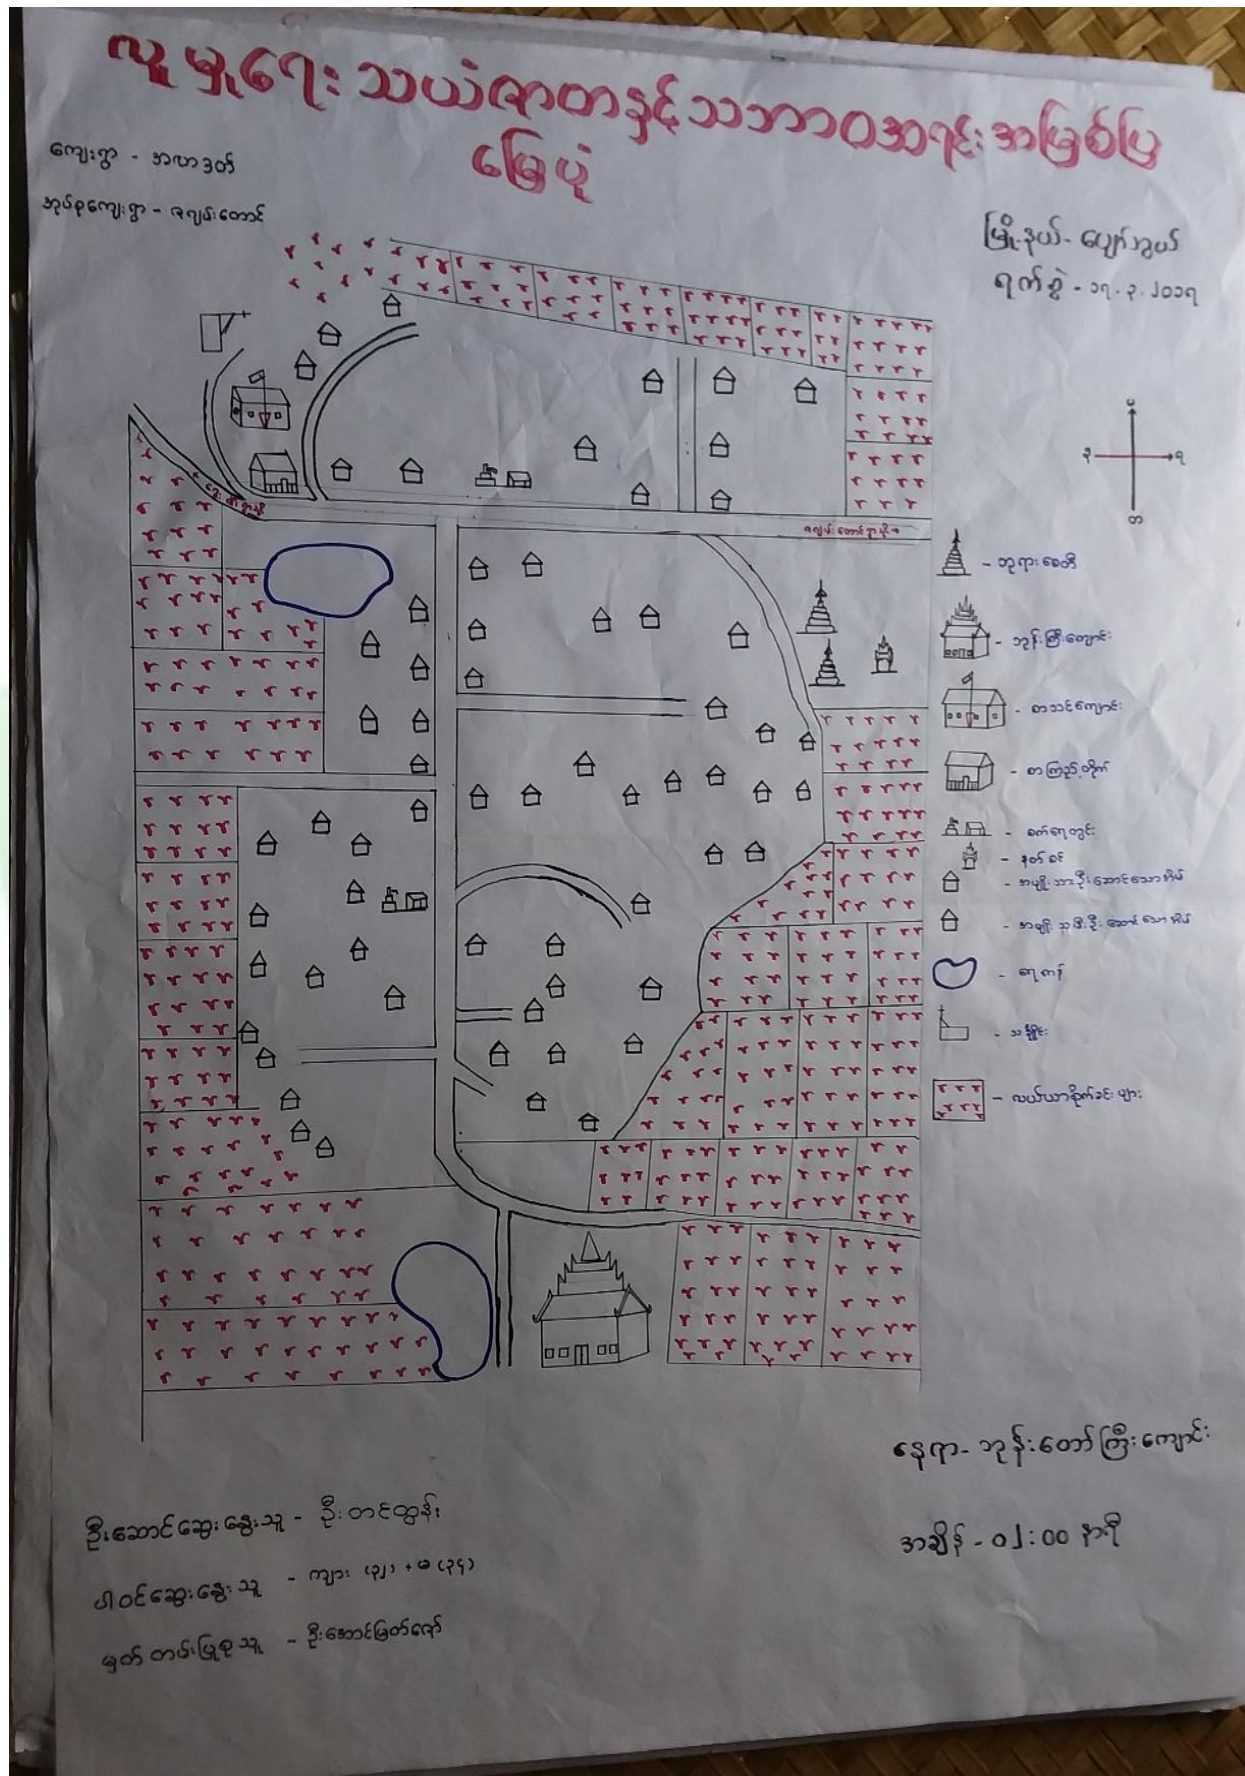 လူမှုရေး သယံဇာတနှင့် သဘာဝအရင်းအမြစ်ပြ
မြေပုံ
ကျေးရွာ - အလာဒတ်
အုပ်စုကျေးရွာ - ဇရပ်တောင်
မြို့နယ် - ပျော်ဘွယ်
ရက်စွဲ - ၁၇.၃.၂၀၁၇
မ
အ
တ
ဘုရားစေတီ
ဘုန်းကြီးကျောင်း
စာသင်ကျောင်း
စာကြည့်တိုက်
စက်ရေတွင်း
နတ်စင်
အမျိုးသားဦးဆောင်သောအိမ်
အမျိုးသမီးဦးဆောင်သောအိမ်
ရေကန်
သင်္ချိုင်း
လယ်ယာစိုက်ခင်းများ
နေရာ - ဘုန်းတော်ကြီးကျောင်း
အချိန် - ၀၂:၀၀ နာရီ
ဦးဆောင်ဆွေးနွေးသူ - ဦးတင်ထွန်း
ပါဝင်ဆွေးနွေးသူ - ကျား (၃၂) + မ (၃၄)
မှတ်တမ်းပြုစုသူ - ဦးအောင်မြတ်ဇော်